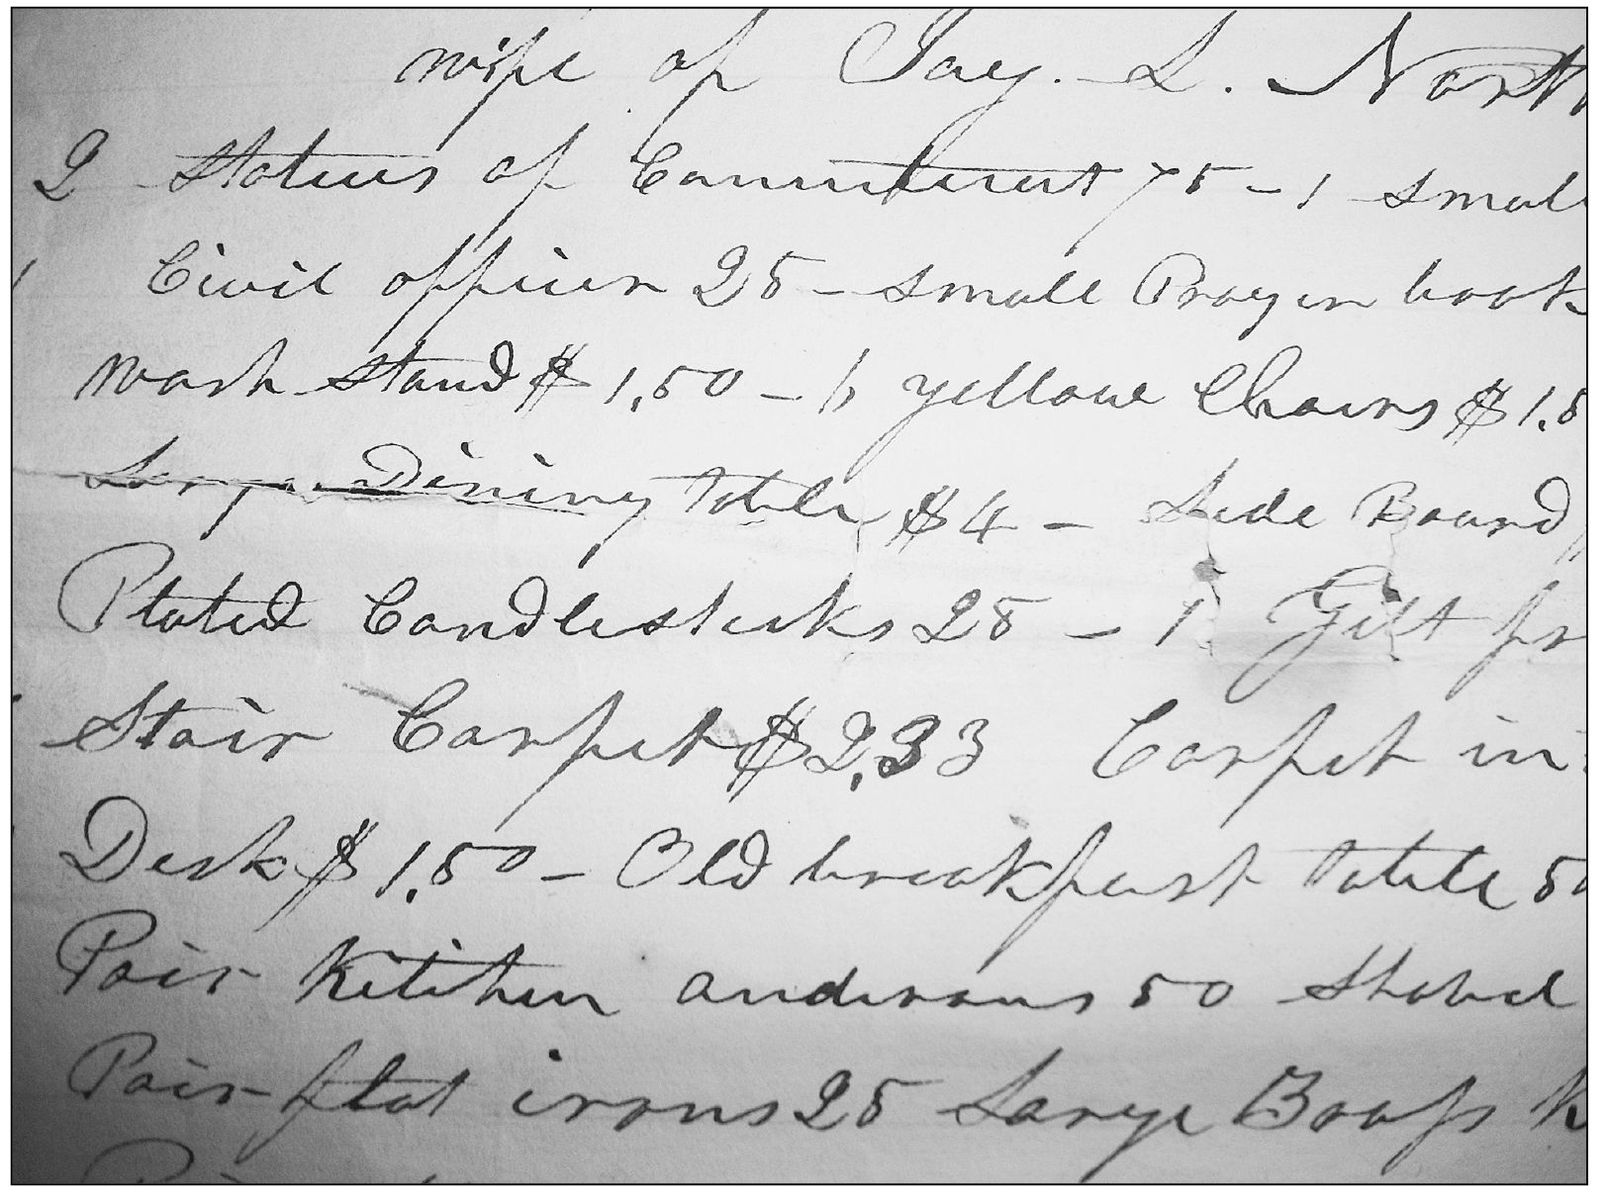 wife of Jay. L. North
2 Statues of Connecticut 75 - 1 small
Civil officer 25 - small Prayer book
wash stand $ 1,50 - 6 yellow Chairs $ 1.5
Large Dining table $ 4 - Side Board
Plated Candlesticks 25 - 1 Gilt fr
Stair Carpet $ 2,33 Carpet in
Desk $ 1,50 - Old breakfast table 50
Pair Kitchen andirons 50 Shovel
Pair flat irons 25 Large Brass K